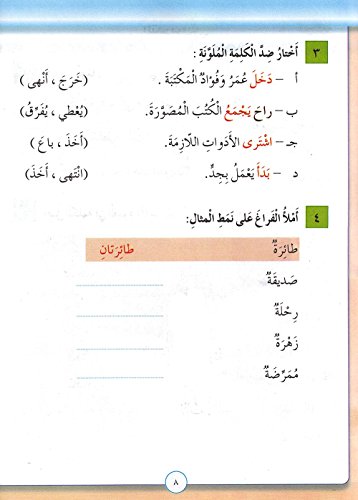 ٣ أَخْتارُ ضِدَّ الْكَلِمَةِ الْمُلَوَّنَةِ :
أ - دَخَلَ عُمَرُ وَفُؤادٌ الْمَكْتَبَةَ . (خَرَجَ ، أَنْهى)
ب- راحَ يَجْمَعُ الْكُتُبَ الْمُصَوَّرَةَ. (يُعْطي ، يُفَرِّقُ)
جـ- اشْتَرى الأَدَواتِ اللاّزِمَةَ. (أَخَذَ ، باعَ)
د - بَدَأَ يَعْمَلُ بِجِدٍّ. (انْتَهى ، أَخَذَ)
٤ أَمْلأُ الْفَراغَ عَلى نَمَطِ الْمثالِ:
طائِرَةٌ طائِرَتانِ
صَديقَةٌ
رِحْلَةٌ
زَهْرَةٌ
مُمَرِّضَةٌ
٨